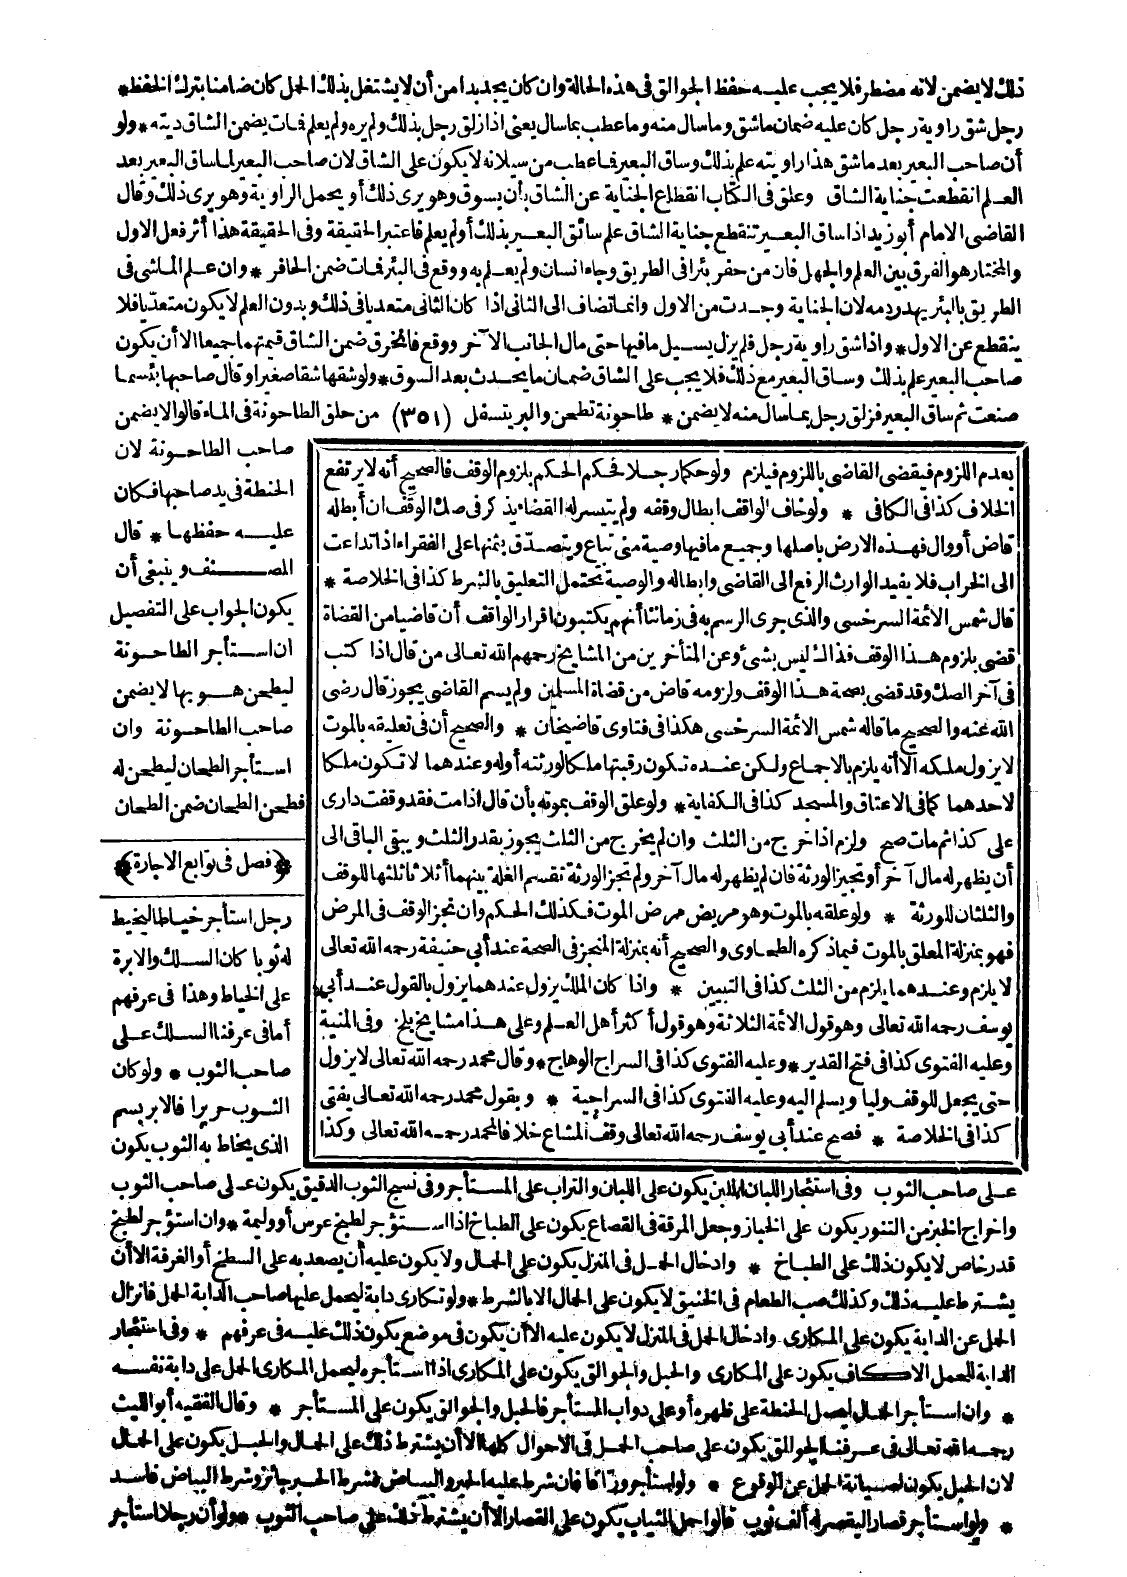 ذلك لا يضمن لانه مضطر فلا يجب عليه حفظ الجوالق فى هذه الحالة وان كان يجد بدا من أن لا يشتغل بذلك الحمل كان ضامنا بترك الحفظ *
رجل شق راوية رجل كان عليه ضمان ما شق وما سال منه وما عطب بما سال يعنى اذا زلق رجل بذلك ولم يره ولم يعلم فمات يضمن الشاق ديته * ولو
أن صاحب البعير بعد ما شق هذا راويته علم بذلك وساق البعير فما عطب من سيلانه لا يكون على الشاق لان صاحب البعير لما ساق البعير بعد
العلم انقطعت جناية الشاق وعلق فى الكتاب انقطاع الجناية عن الشاق بأن يسوق وهو يرى ذلك أو يحمل الراوية وهو يرى ذلك وقال
القاضى الامام أبو زيد اذا ساق البعير تنقطع جناية الشاق علم سائق البعير بذلك أو لم يعلم فاعتبر الحقيقة وفى الحقيقة هذا أثر فعل الاول
والمختار هو الفرق بين العلم والجهل فان من حفر بئرا فى الطريق وجاء انسان ولم يعلم به ووقع فى البئر فمات ضمن الحافر * وان علم الماشى فى
الطريق بالبئر يهدر دمه لان الجناية وجدت من الاول وانما تضاف الى الثانى اذا كان الثانى متعديا فى ذلك وبدون العلم لا يكون متعديا فلا
ينقطع عن الاول * واذا شق راوية رجل فلم يزل يسيل ما فيها حتى مال الجانب الآخر ووقع فانخرق ضمن الشاق قيمتهما جميعا الا أن يكون
صاحب البعير علم بذلك وساق البعير مع ذلك فلا يجب على الشاق ضمان ما يحدث بعد السوق * ولو شقها شقا صغيرا وقال صاحبها بئسما
صنعت ثم ساق البعير فزلق رجل بما سال منه لا يضمن * طاحونة تطحن والبر يتسفل (٣٥١) من حلق الطاحونة فى الماء قالوا لا يضمن
صاحب الطاحونة لان
الحنطة فى يد صاحبها فكان
عليه حفظها * قال
المصنف وينبغى أن
يكون الجواب على التفصيل
ان استأجر الطاحونة
ليطحن هو بها لا يضمن
صاحب الطاحونة وان
استأجر الطحان ليطحن له
فطحن الطحان ضمن الطحان
﴿فصل فى توابع الاجارة﴾
رجل استأجر خياطا ليخيط
له ثوبا كان السلك والابرة
على الخياط وهذا فى عرفهم
أما فى عرفنا السلك على
صاحب الثوب * ولو كان
الثوب حريرا فالابريسم
الذى يخاط به الثوب يكون
بعدم اللزوم فيقضى القاضى باللزوم فيلزم ولو حكما رجلا فحكم الحكم بلزوم الوقف فالصحيح أنه لا يرتفع
الخلاف كذا فى الكافى * ولو خاف الواقف ابطال وقفه ولم يتيسر له القضاء يذكر فى صك الوقف ان أبطله
قاض أو وال فهذه الارض باصلها وجميع ما فيها وصية منى تباع ويتصدق بثمنها على الفقراء اذا تداعت
الى الخراب فلا يفيد الوارث الرفع الى القاضى وابطاله والوصية يحتمل التعليق بالشرط كذا فى الخلاصة *
قال شمس الائمة السرخسى والذى جرى الرسم به فى زماننا أنهم يكتبون اقرار الواقف أن قاضيا من القضاة
قضى بلزوم هذا الوقف فذاك ليس بشئ وعن المتأخرين من المشايخ رحمهم الله تعالى من قال اذا كتب
فى آخر الصك وقد قضى بصحة هذا الوقف ولزومه قاض من قضاة المسلمين ولم يسم القاضى يجوز قال رضى
الله عنه والصحيح ما قاله شمس الائمة السرخسى هكذا فى فتاوى قاضيخان * والصحيح أن فى تعليقه بالموت
لا يزول ملكه الا أنه يلزم بالاجماع ولكن عنده تكون رقبتها ملكا لورثته أو له وعندهما لا تكون ملكا
لاحدهما كما فى الاعتاق والمسجد كذا فى الكفاية * ولو علق الوقف بموته بأن قال اذا مت فقد وقفت دارى
على كذا ثم مات صح ولزم اذا خرج من الثلث وان لم يخرج من الثلث يجوز بقدر الثلث ويبقى الباقى الى
أن يظهر له مال آخر أو تجيز الورثة فان لم يظهر له مال آخر ولم تجز الورثة تقسم الغلة بينهما أثلاثا ثلثها للوقف
والثلثان للورثة * ولو علقه بالموت وهو مريض مرض الموت فكذلك الحكم وان نجز الوقف فى المرض
فهو بمنزلة المعلق بالموت فيما ذكره الطحاوى والصحيح أنه بمنزلة المنجز فى الصحة عند أبى حنيفة رحمه الله تعالى
لا يلزم وعندهما يلزم من الثلث كذا فى التبيين * واذا كان الملك يزول عندهما يزول بالقول عند أبى
يوسف رحمه الله تعالى وهو قول الائمة الثلاثة وهو قول أكثر أهل العلم وعلى هذا مشايخ بلخ وفى المنية
وعليه الفتوى كذا فى فتح القدير * وعليه الفتوى كذا فى السراج الوهاج * وقال محمد رحمه الله تعالى لا يزول
حتى يجعل للوقف وليا ويسلم اليه وعليه الفتوى كذا فى السراجية * وبقول محمد رحمه الله تعالى يفتى
كذا فى الخلاصة * فصح عند أبى يوسف رحمه الله تعالى وقف المشاع خلافا لمحمد رحمه الله تعالى وكذا
على صاحب الثوب وفى استئجار اللبان الملبن يكون على اللبان والتراب على المستأجر وفى نسج الثوب الدقيق يكون على صاحب الثوب
واخراج الخبز من التنور يكون على الخباز وجعل المرقة فى القصاع يكون على الطباخ اذا استؤجر لطبخ عرس أو وليمة * وان استؤجر لطبخ
قدر خاص لا يكون ذلك على الطباخ * وادخال الحمل فى المنزل يكون على الحمال ولا يكون عليه أن يصعد به على السطح أو الغرفة الا أن
يشترط عليه ذلك وكذلك صب الطعام فى الخنبق لا يكون على الحمال الا بالشرط * ولو تكارى دابة ليحمل عليها صاحب الدابة الحمل فانزال
الحمل عن الدابة يكون على المكارى وادخال الحمل فى المنزل لا يكون عليه الا أن يكون فى موضع يكون ذلك عليه فى عرفهم * وفى استئجار
الدابة للحمل الاكاف يكون على المكارى والحبل والجوالق يكون على المكارى اذا استأجره ليحمل المكارى الحمل على دابة نفسه
* وان استأجر الحمال ليحمل الحنطة على ظهره أو على دواب المستأجر فالحبل والجوالق يكون على المستأجر * وقال الفقيه أبو الليث
رحمه الله تعالى فى عرفنا الجوالق يكون على صاحب الحمل فى الاحوال كلها الا أن يشترط ذلك على الحمال والحبل يكون على الحمال
لان الحبل يكون لصيانة الحمل عن الوقوع * ولو استأجر وراقا فان شرط عليه الحبر والبياض فشرط الحبر جائز وشرط البياض فاسد
* ولو استأجر قصارا ليقصر له ألف ثوب قالوا حمل الثياب يكون على القصار الا أن يشترط ذلك على صاحب الثوب * ولو أن رجلا استأجر